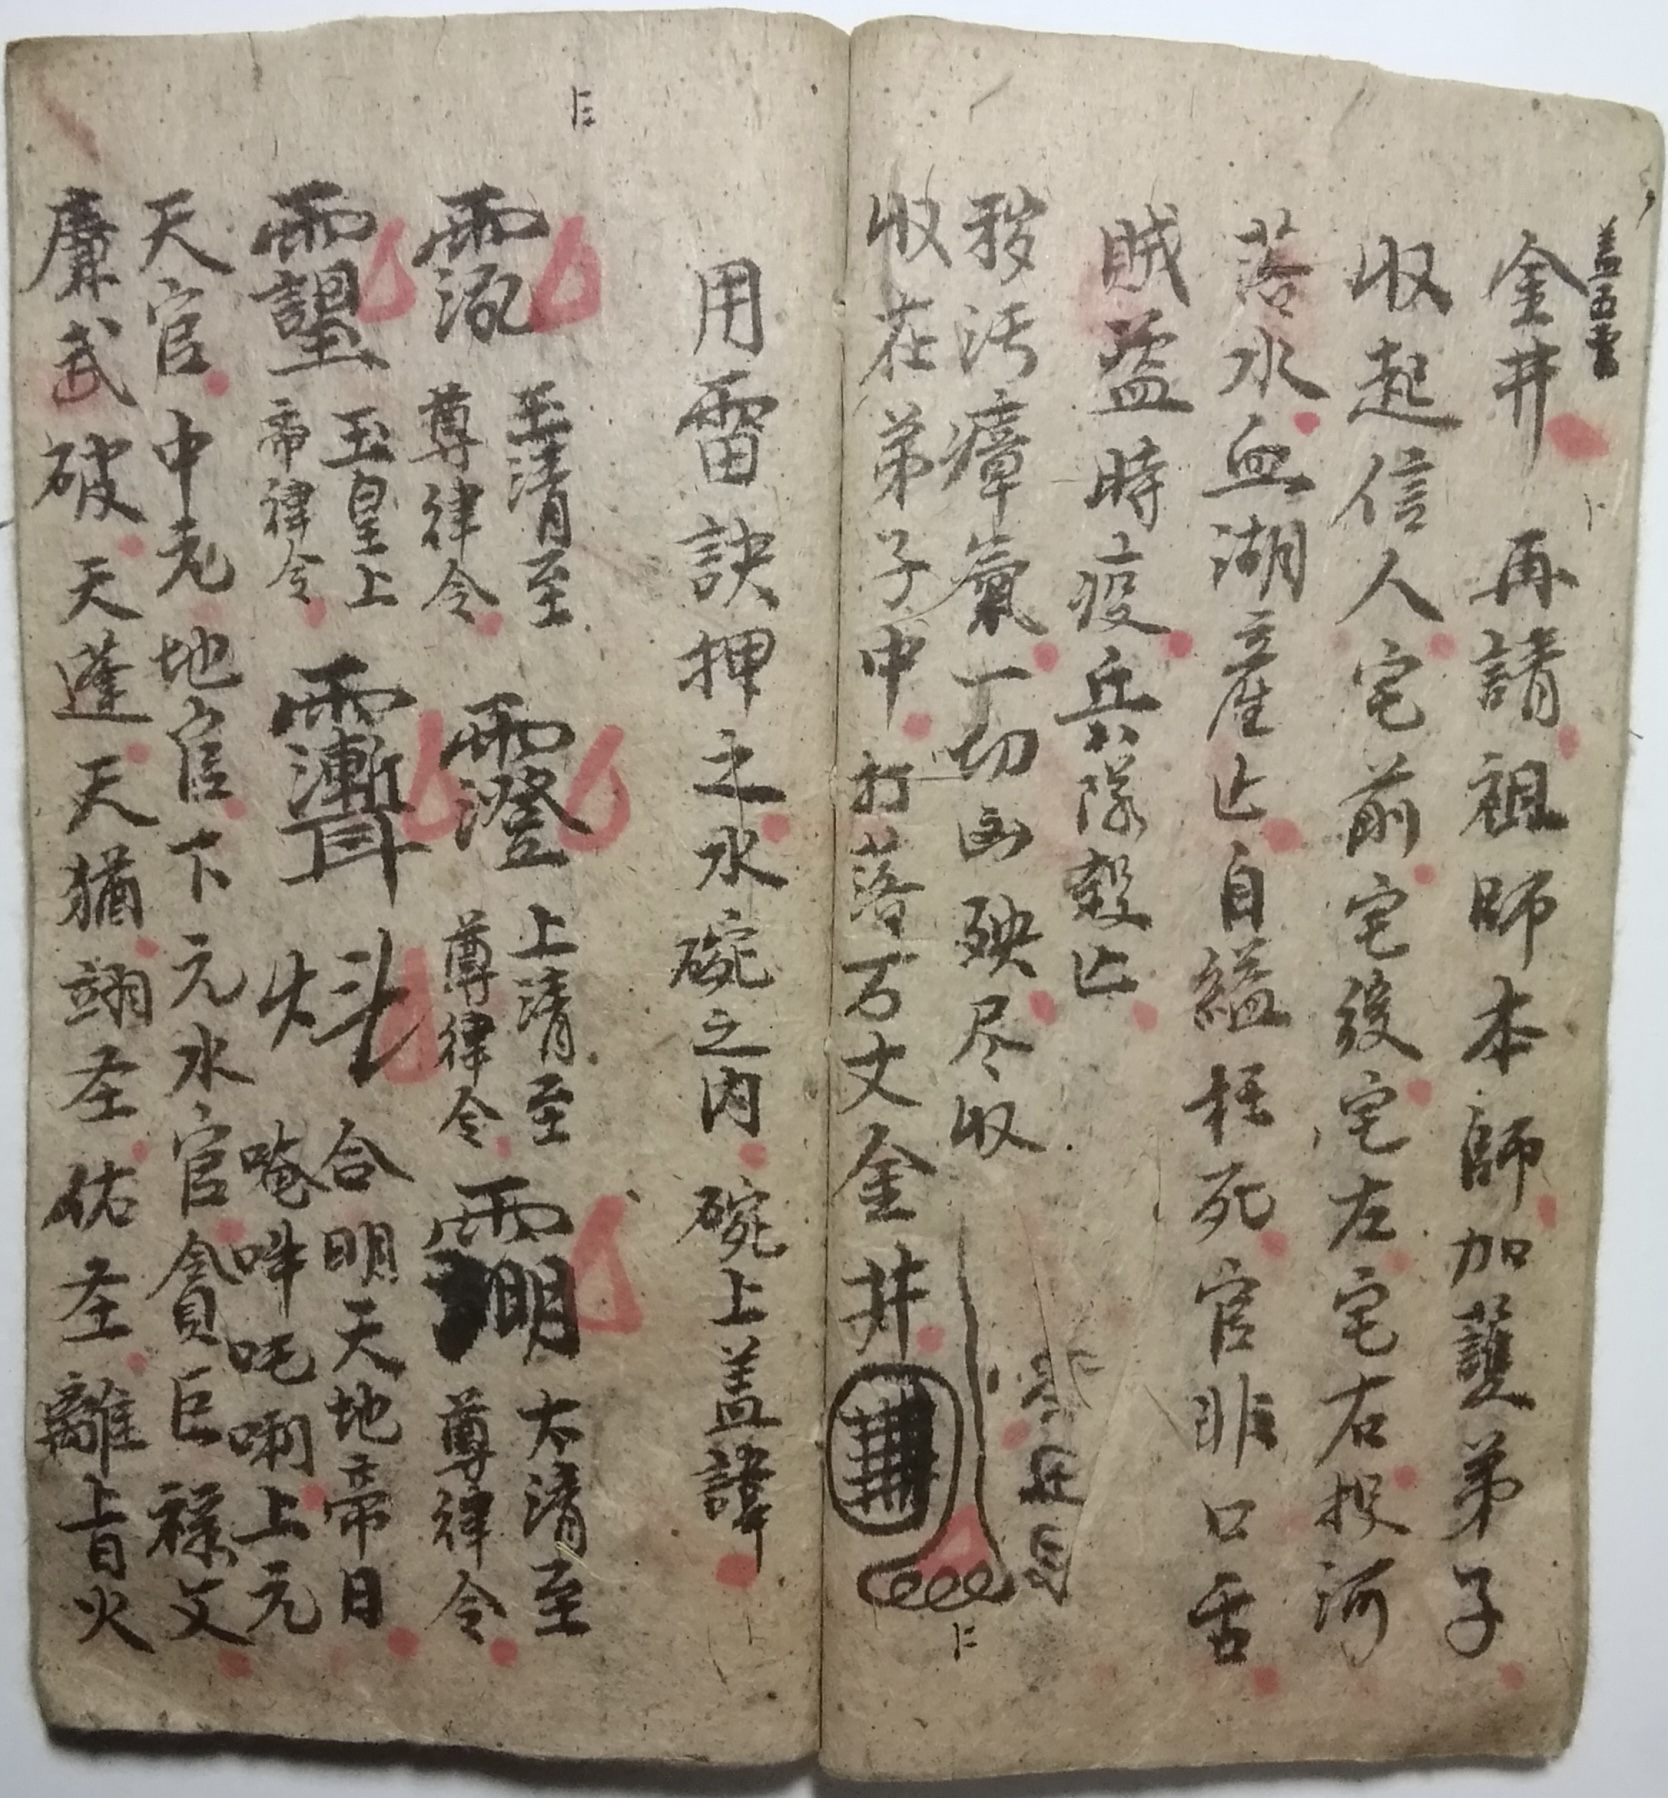 盖五雷
金井 再請祖師本師加護弟子
收起信人宅前宅後宅左宅右投河
落水血湖產亡自縊枉死官非口舌
賊盜時疫兵隊殺亡
穢污瘴氣一切凶殃尽收
收在弟子中打落万丈金井
用雷訣押之水碗之内碗上盖諱
玉清至
尊律令
上清至
尊律令
太清至
尊律令
玉皇上
帝律令
合明天地帝日
唵吽吒唎上元
天官中元地官下元水官貪巨祿文
廉武破天蓬天猶翊圣佑圣離上旨火